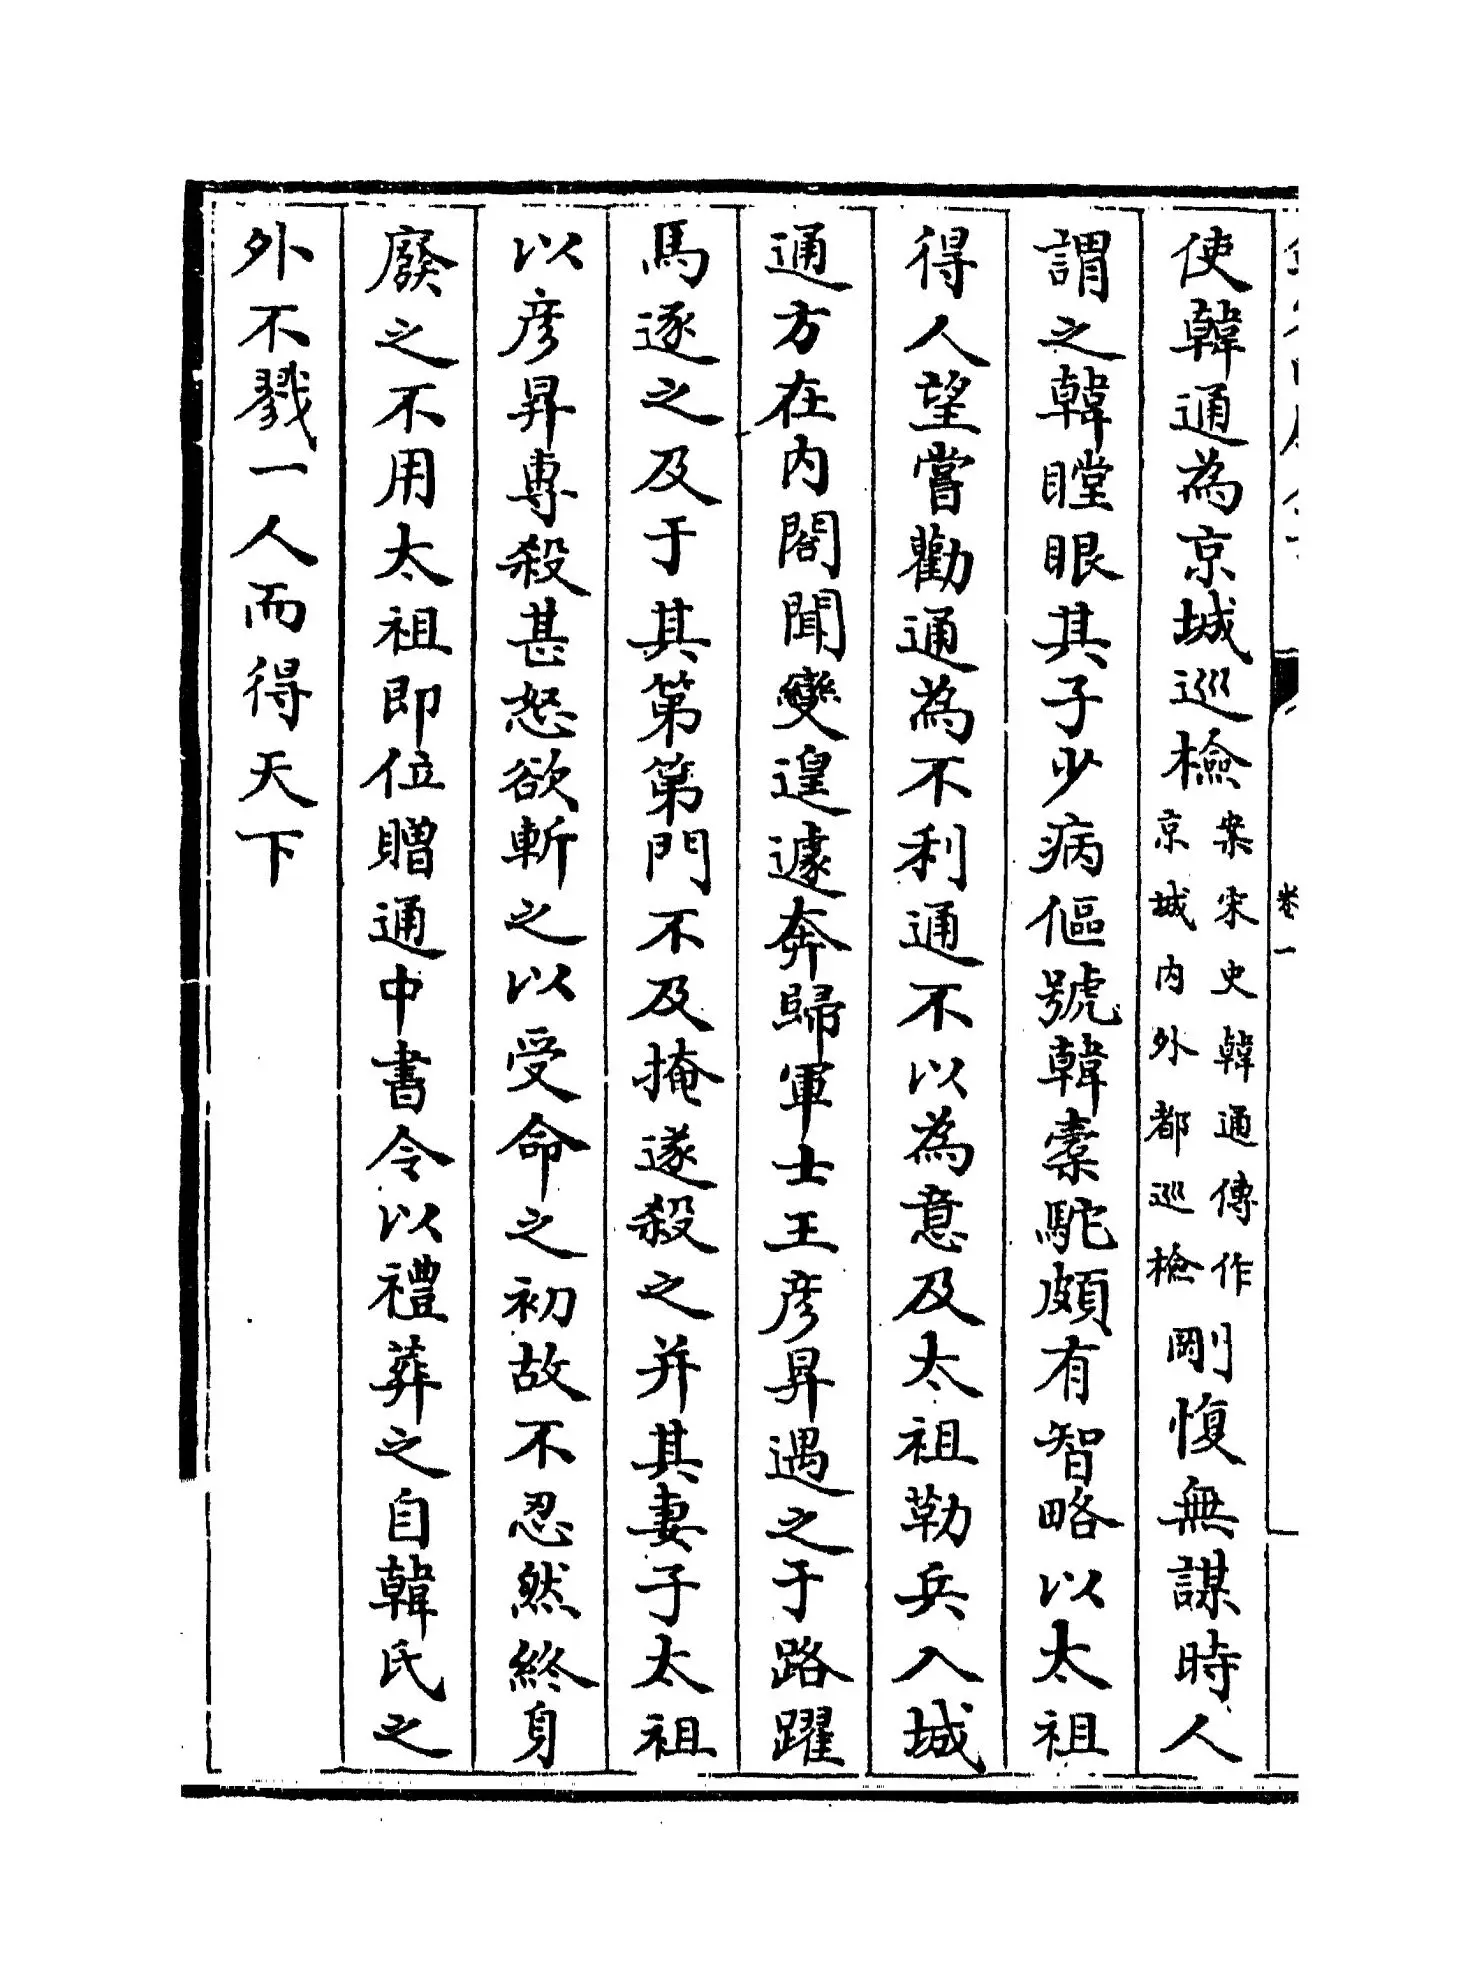 使韓通為京城巡檢案宋史韓通傳作京城内外都巡檢剛愎無謀時人
謂之韓瞠眼其子少病傴號韓橐駝頗有智略以太祖
得人望嘗勸通為不利通不以為意及太祖勒兵入城
通方在内閣聞變遑遽奔歸軍士王彦昇遇之于路躍
馬逐之及于其第第門不及掩遂殺之并其妻子太祖
以彦昇專殺甚怒欲斬之以受命之初故不忍然終身
廢之不用太祖即位贈通中書令以禮葬之自韓氏之
外不戮一人而得天下
卷一